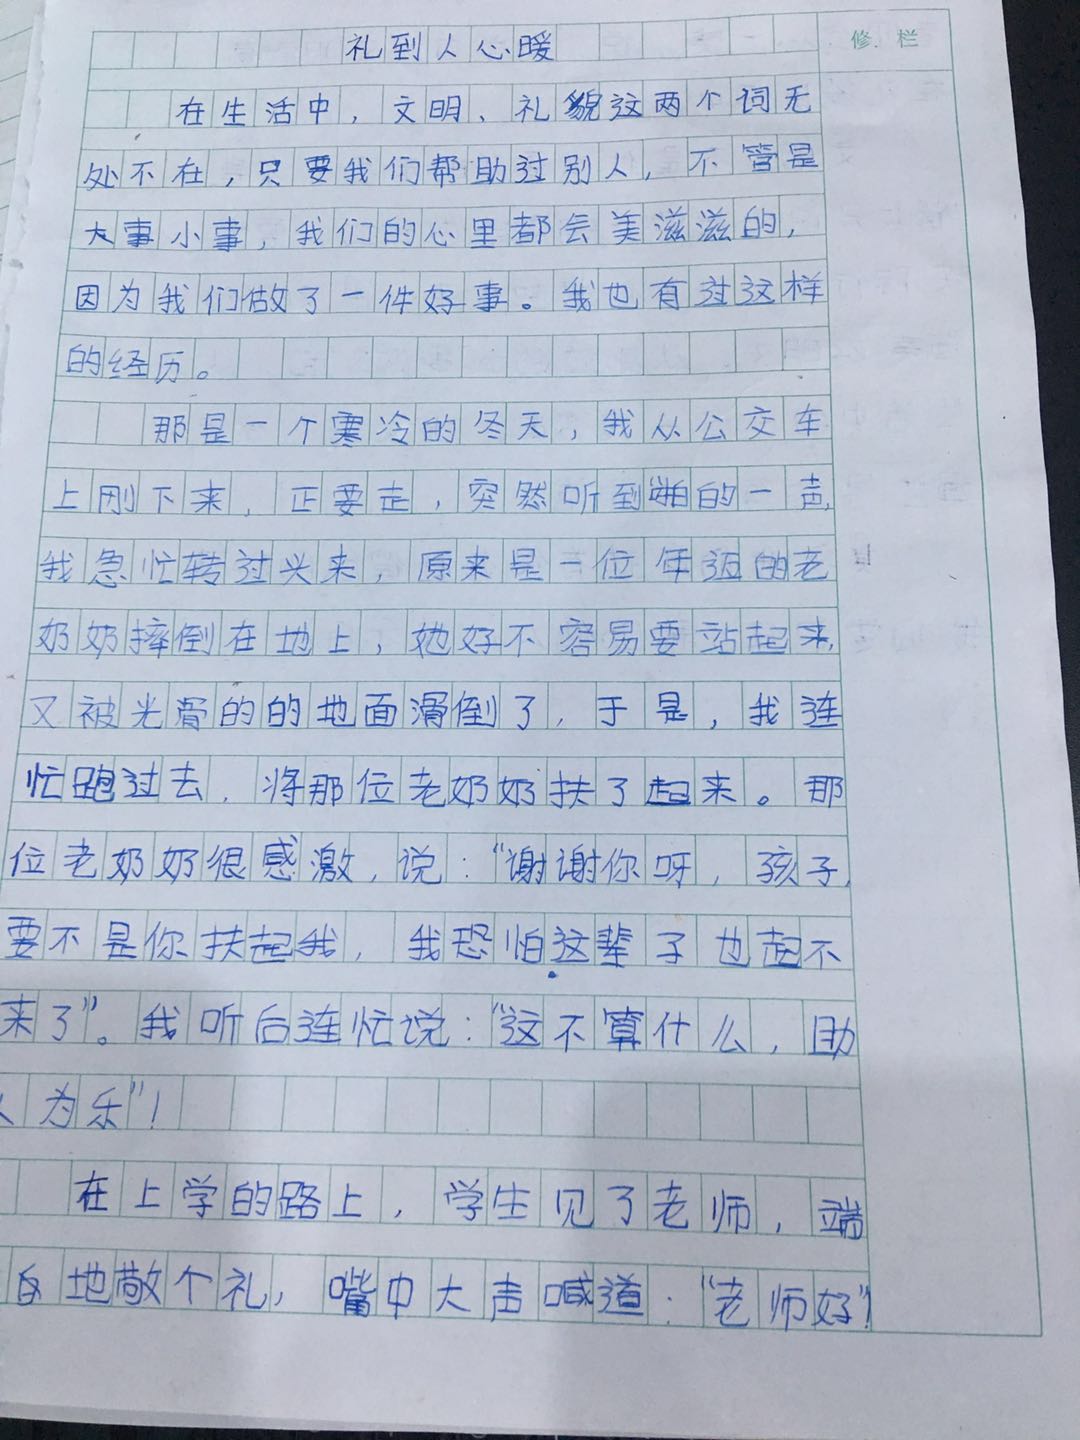 礼到人心暖
修 栏
在生活中，文明、礼貌这两个词无
处不在，只要我们帮助过别人，不管是
大事小事，我们的心里都会美滋滋的，
因为我们做了一件好事。我也有过这样
的经历。
那是一个寒冷的冬天，我从公交车
上刚下来，正要走，突然听到啪的一声，
我急忙转过头来，原来是一位年迈的老
奶奶摔倒在地上，她好不容易要站起来，
又被光骨的的地面滑倒了，于是，我连
忙跑过去，将那位老奶奶扶了起来。那
位老奶奶很感激，说：“谢谢你呀，孩子，
要不是你扶起我，我恐怕这辈子也起不
来了”。我听后连忙说：“这不算什么，助
人为乐”！
在上学的路上，学生见了老师，端
地敬个礼，嘴中大声喊道：“老师好”！